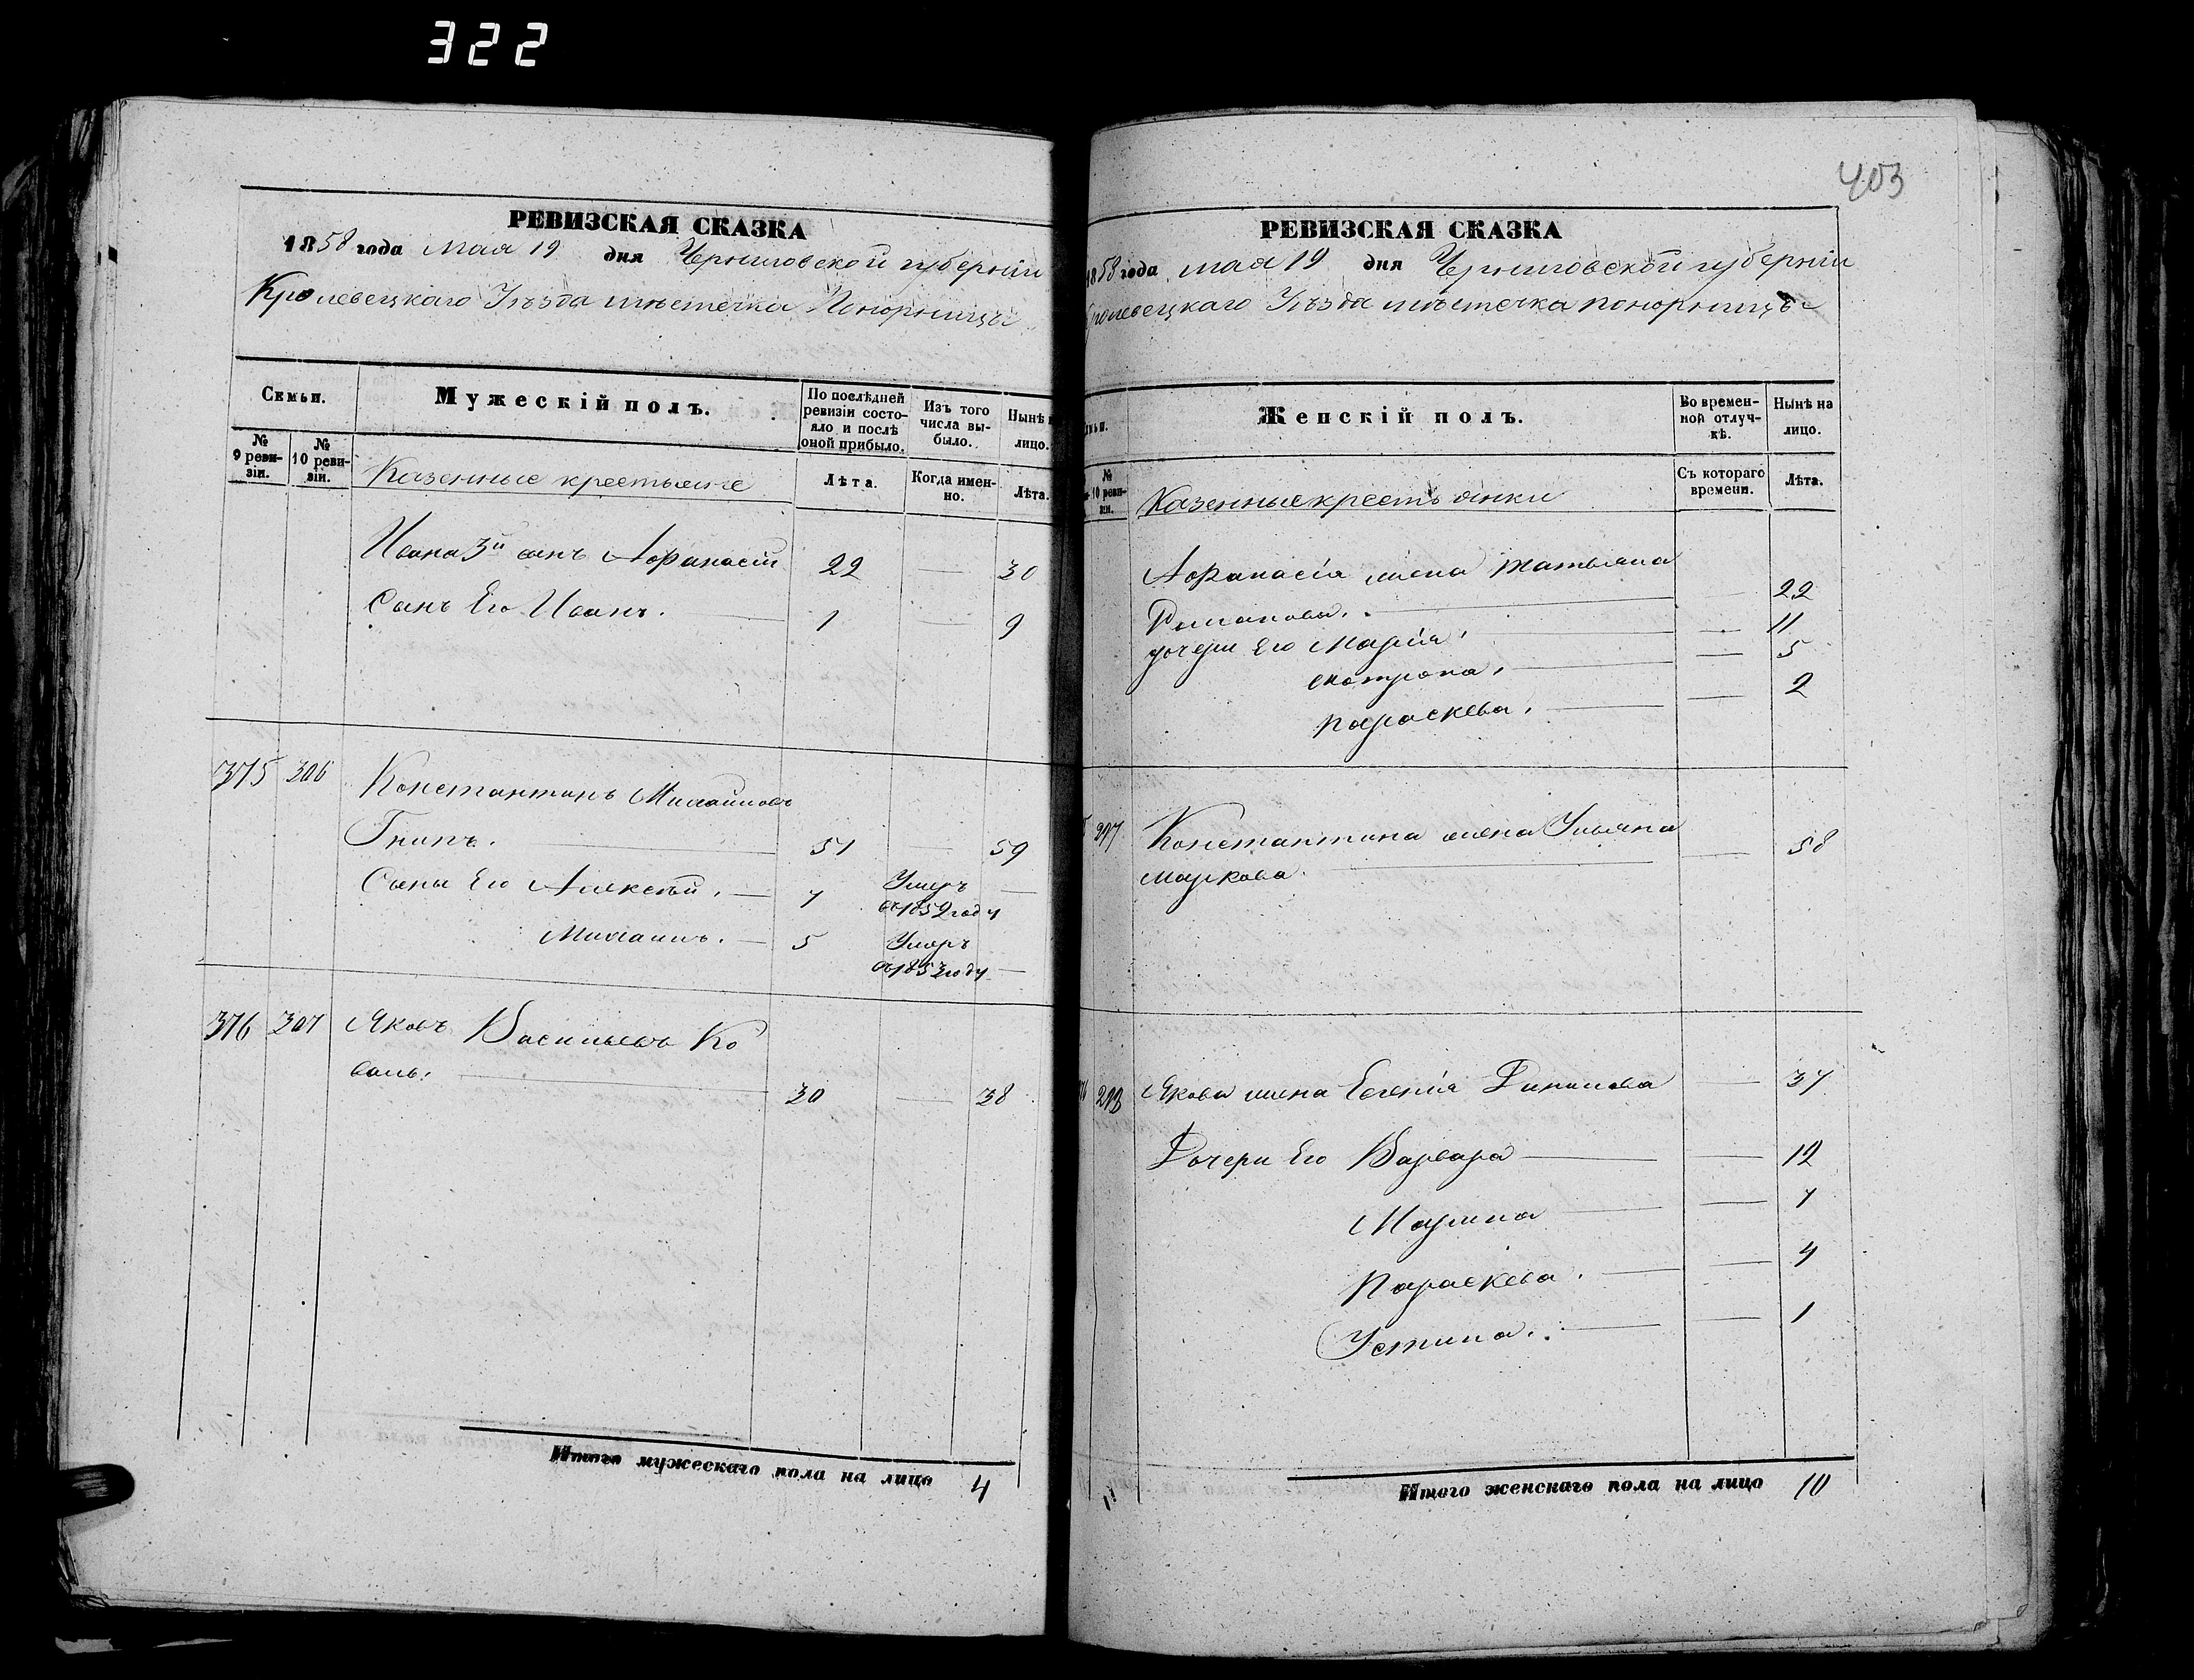 322
РЕВИЗСКАЯ СКАЗКА
1858 года Мая 19 дня Черниговской губерніи
Кролевецкаго Уѣзда мѣстечка Понорницы
Семьи.
Мужескій полъ.
По послѣдней ревизіи состояло и послѣ оной прибыло.
Изъ того числа выбыло.
Нынѣ на лицо.
№ 9 ревизіи.
№ 10 ревизіи.
Казенные крестьяне
Лѣта.
Когда именно.
Лѣта.
Ивана 3й сынъ Афанасій 22 — 30
Сынъ Его Иванъ. — 1 — 9
375 306 Константинъ Михайловъ
Гнипъ. — 51 — 59
Сыны Его Алексѣй. — 7 Умеръ въ 1852 году —
Михаилъ. — 5 Умеръ въ 1853 году —
376 307 Яковъ Васильевъ Ко
валь. — 30 — 38
Итого мужескаго пола на лицо 4
403
РЕВИЗСКАЯ СКАЗКА
1858 года мая 19 дня Черниговской губерніи
Кролевецкаго Уѣзда мѣстечка Понорницы
Женскій полъ.
Во временной отлучкѣ.
Нынѣ на лицо.
№ 10 ревизіи.
Казенные крестьянки
Съ котораго времени.
Лѣта.
Афанасія жена Татьяна
Романова. — 22
дочери Его Марія. — 11
Матрона. — 5
Параскева. — 2
Константина жена Ульяна
Маркова. — 58
Якова жена Евгенія Данилова — 37
Дочери Его Варвара — 12
Марина — 7
Параскева. — 4
Устина. — 1
Итого женскаго пола на лицо 10